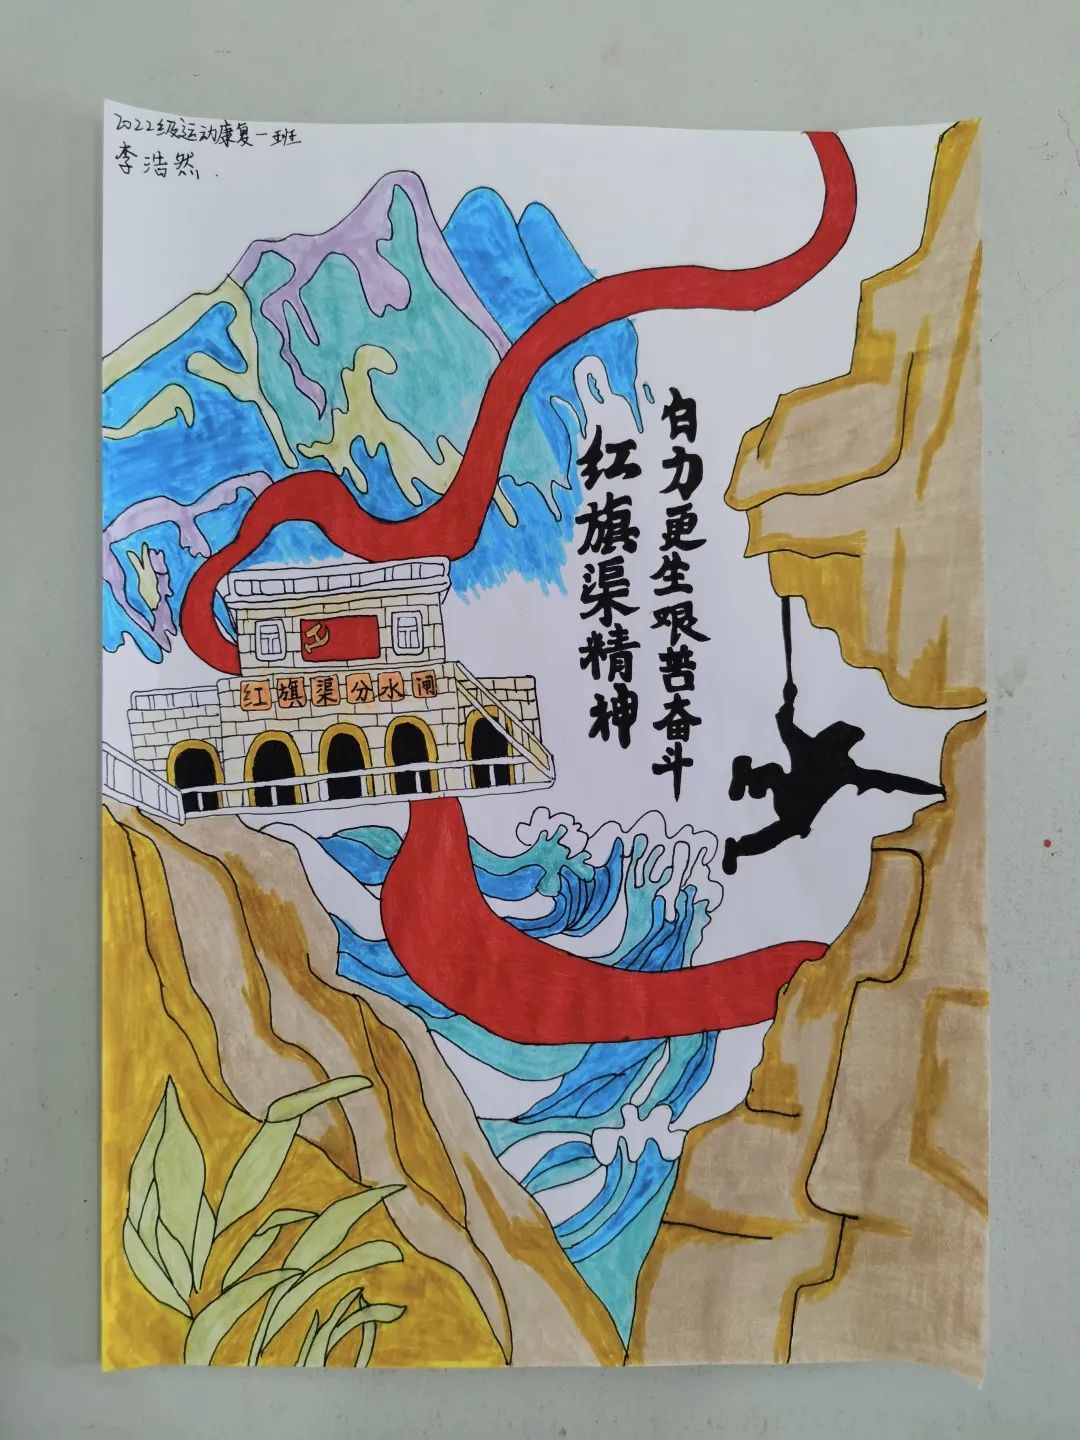 2022级运动康复一班
李浩然.
自力更生艰苦奋斗
红旗渠精神
红旗渠分水闸